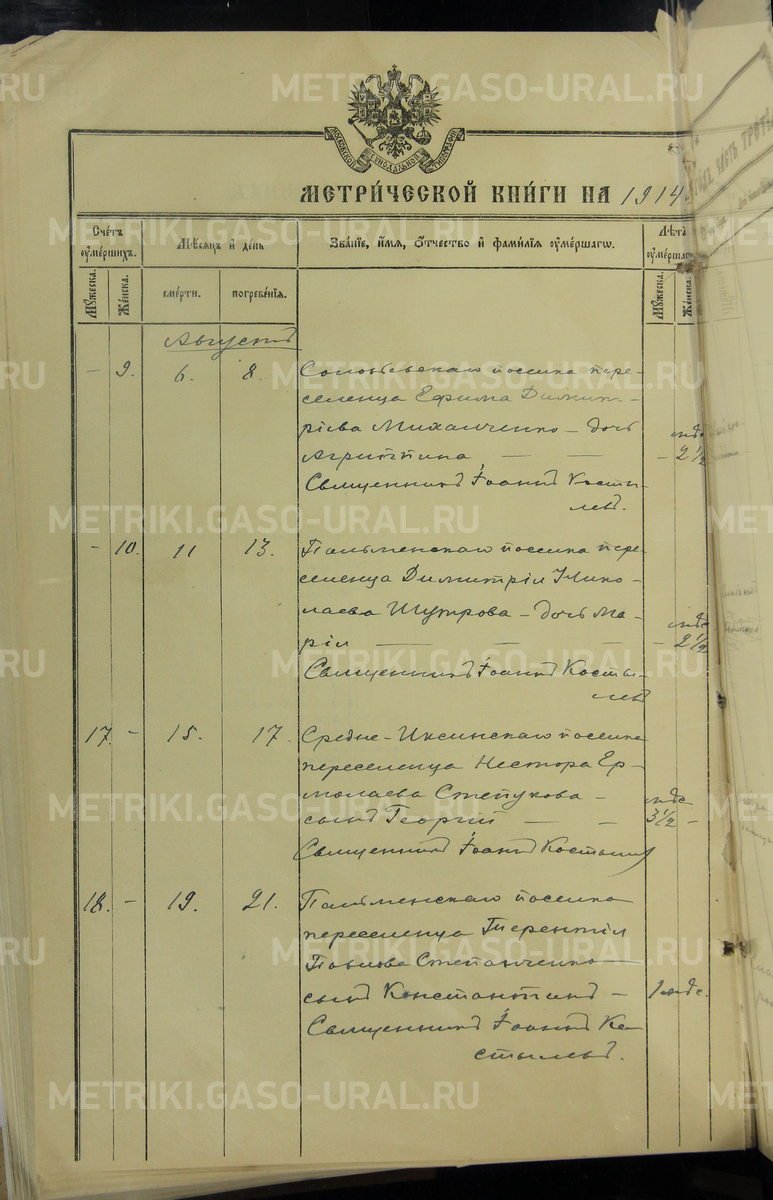 METRIKI.GASO-URAL.RU
МОСКОВСКОЙ СѴНОДАЛЬНОЙ ТИПОГРАФІИ
МЕТРИ́ЧЕСКОЙ КНИ́ГИ НА 1914
Сче́тъ ᲂу҆ме́ршихъ.
Мѣ́сяцъ и҆ де́нь
Зва́нїе, и҆́мя, ѻ҆́тчество и҆ фами́лїя ᲂу҆ме́ршагѡ.
Лѣ́та ᲂу҆ме́ршаг
Мꙋ́жеска.
Же́нска.
сме́рти.
погребе́нїѧ.
Мꙋ́жеска.
Же́нска.
Августъ
– 9. 6. 8. Соловьевскаго поселка пере-
селенца Ефима Димит-
ріева Михайченко – дочь
Агриппина — — – 2 ½ мѣс
Священникъ Іоаннъ Косты-
левъ.
– 10. 11 13. Пальменскаго поселка пере-
селенца Димитрія Нико-
лаева Шутрова – дочь Ма-
рія — – – – 2 ½ мѣс
Священникъ Іоаннъ Косты-
левъ
17. – 15. 17. Средне-Иксинскаго поселка
переселенца Нестора Ер-
молаева Степукова –
сынъ Георгій — – 3 ½ мѣс –
Священникъ Іоаннъ Костылев
18. – 19. 21. Пальменскаго поселка
переселенца Терентія
Павлова Степанченко
сынъ Константинъ – 1 мѣс.
Священникъ Іоаннъ Ко-
стылевъ.